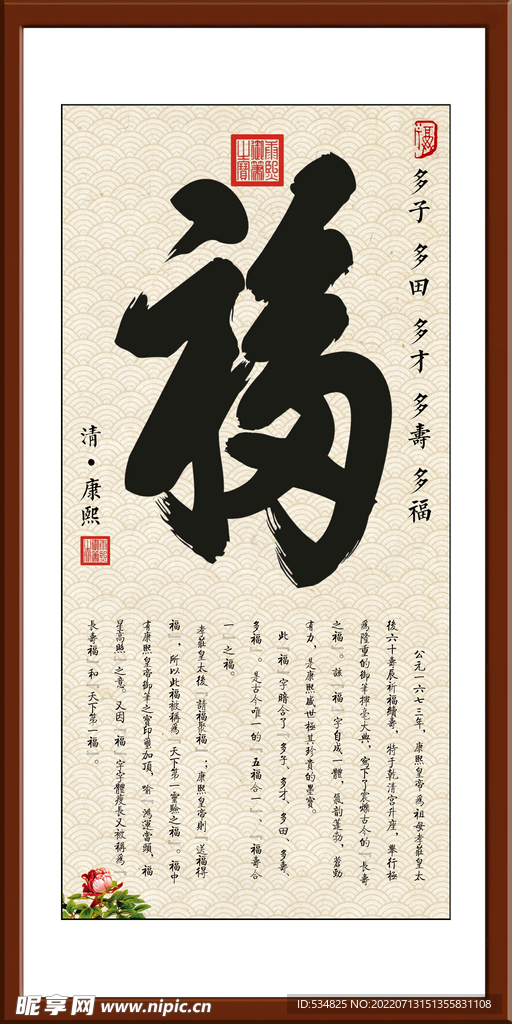 福
多子 多田 多才 多壽 多福
康熙御筆之寶
福
清·康熙
公元一六七三年，康熙皇帝為祖母孝莊皇太
後六十壽辰祈福續壽，特于乾清宮升座，舉行極
為隆重的御筆揮毫大典，寫下了震爍古今的『長壽
之福』。該『福』字自成一體，氣韵蓬勃，蒼勁
有力，是康熙盛世極其珍貴的墨寶。
此『福』字暗合了『多子、多才、多田、多壽、
多福』。是古今唯一的『五福合一』、『福壽合
一』之福。
孝莊皇太後『請福聚福』；康熙皇帝則『送福得
福』，所以此福被稱為『天下第一靈驗之福』。福中
有康熙皇帝御筆之寶印璽加頂，喻『鴻運當頭，福
星高照』之意。又因『福』字字體瘦長又被稱為『
長壽福』和『天下第一福』。
昵享网 www.nipic.cn
ID:534825 NO:20220713151355831108